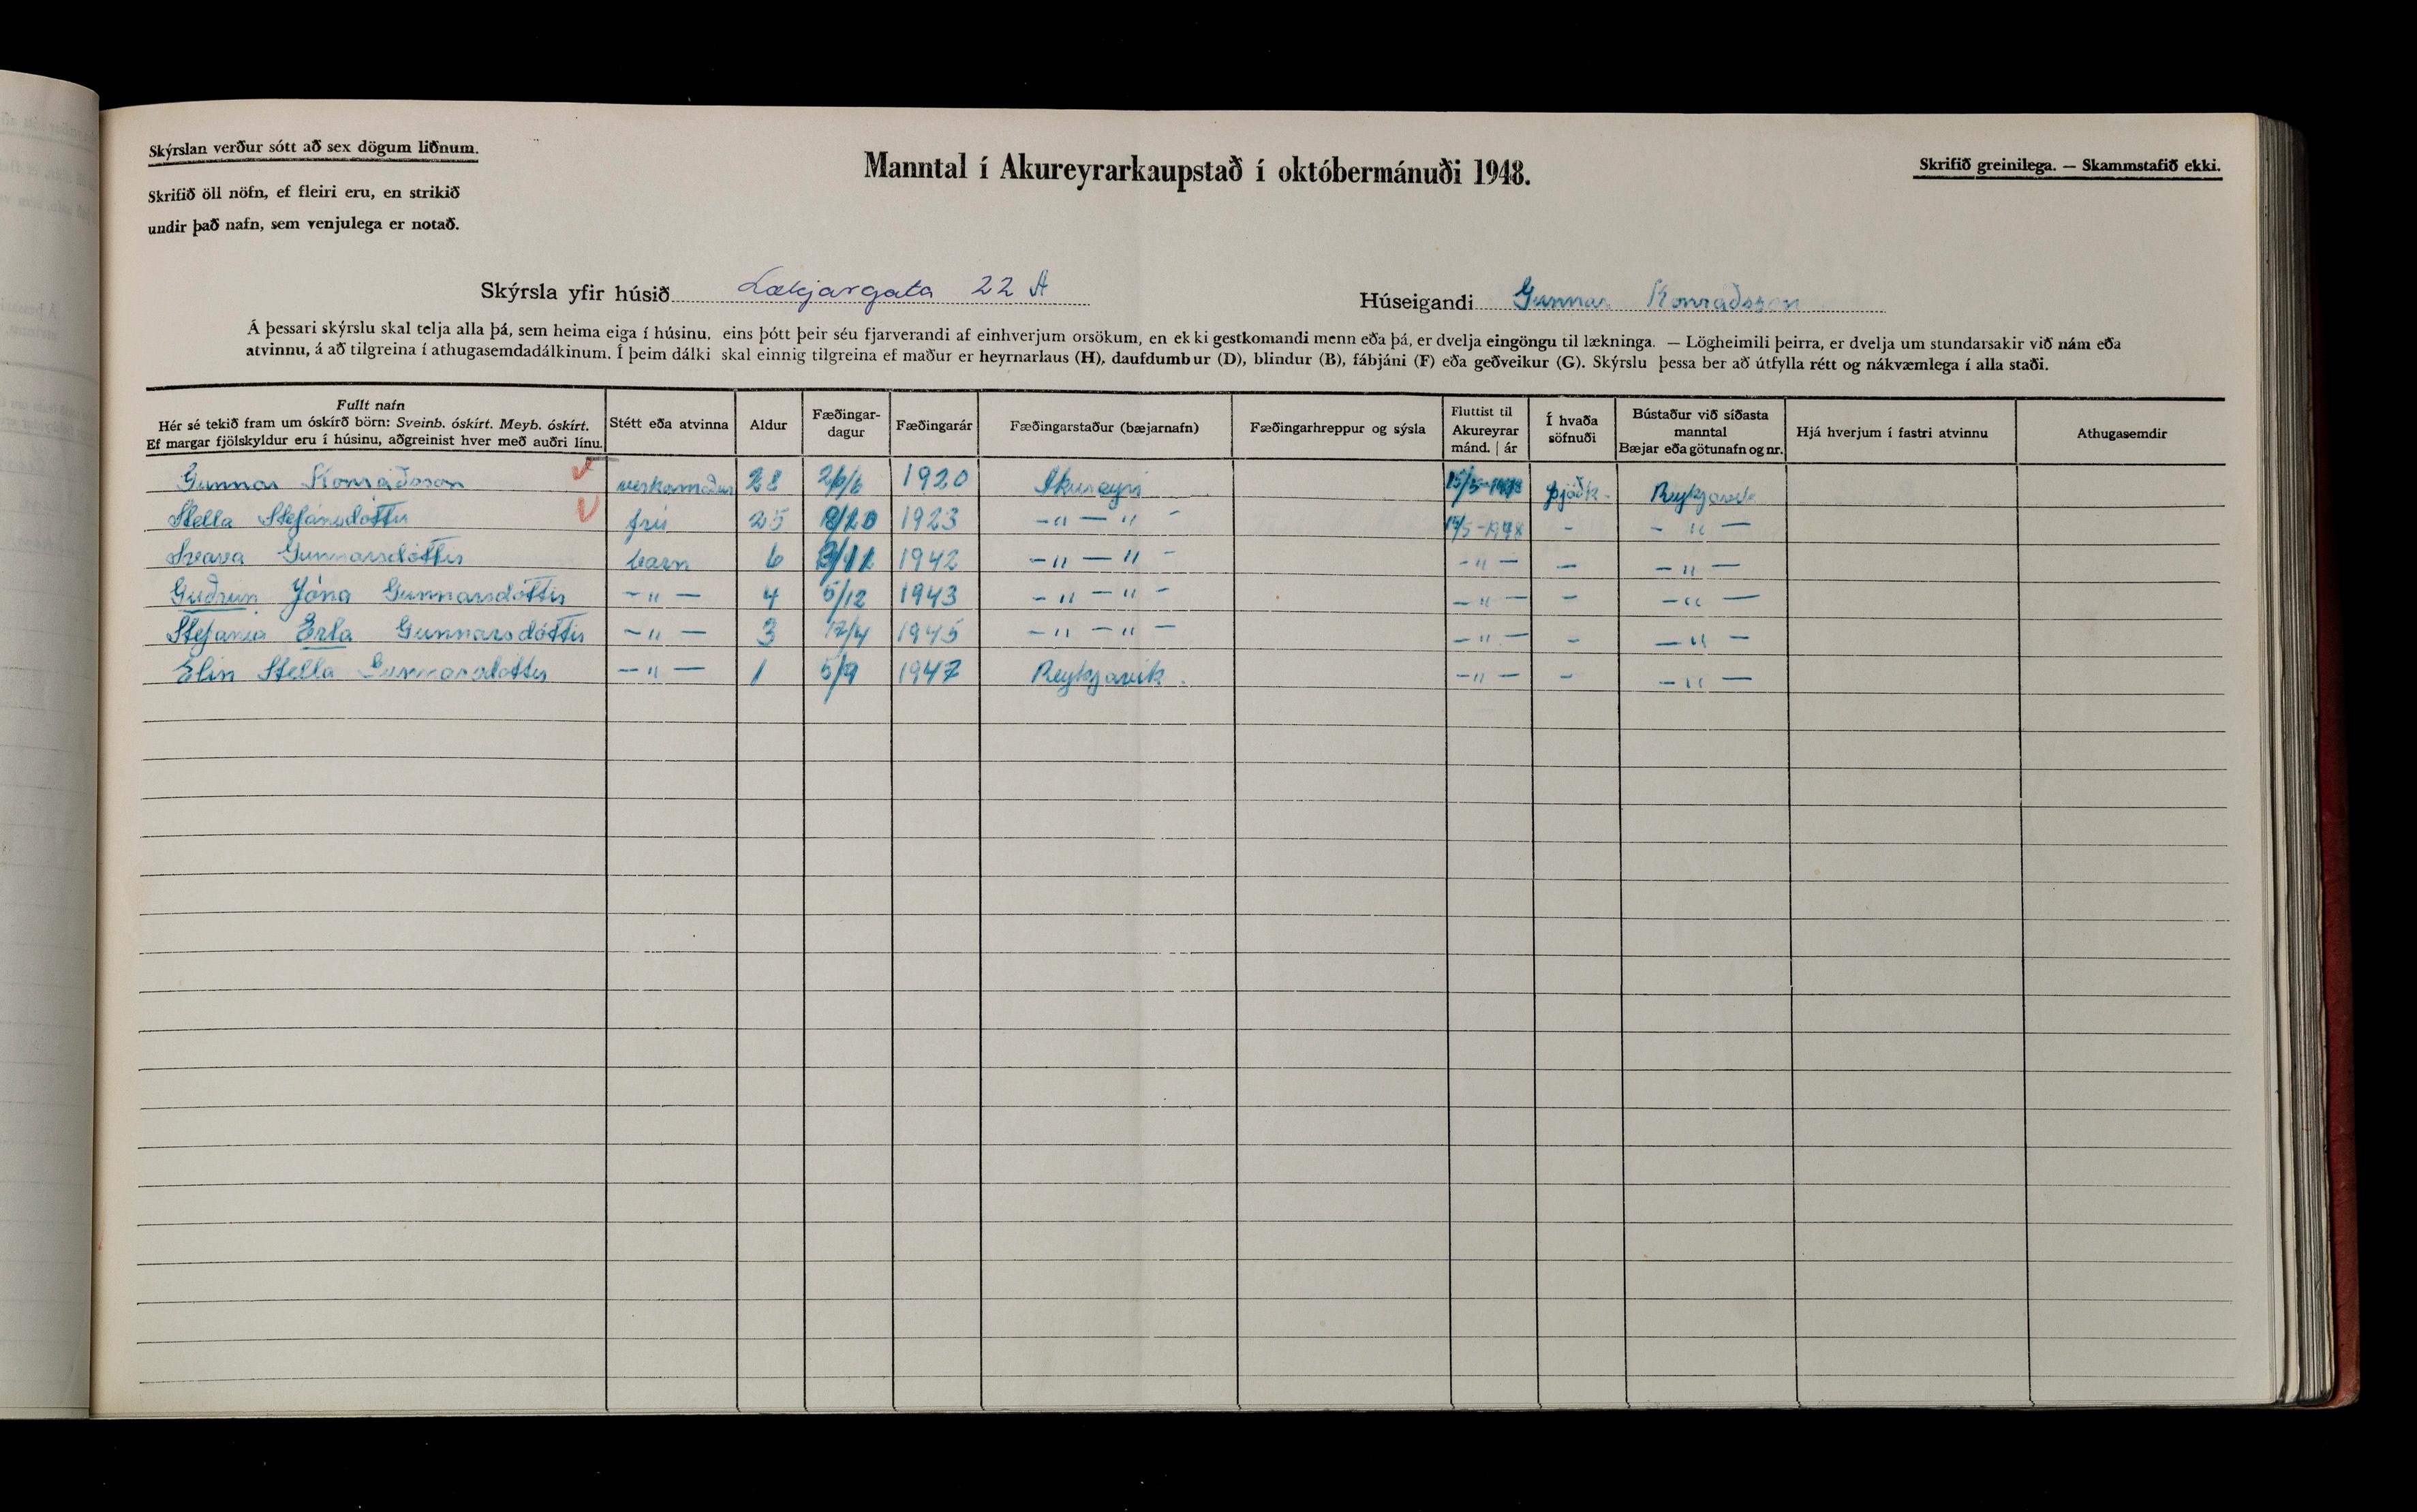 Skýrslan verður sótt að sex dögum liðnum.
Skrifið öll nöfn, ef fleiri eru, en strikið
undir það nafn, sem venjulega er notað.
Manntal í Akureyrarkaupstað í októbermánuði 1948.
Skrifið greinilega. — Skammstafið ekki.
Skýrsla yfir húsið Lækjargata 22 A
Húseigandi Gunnar Konráðsson
Á þessari skýrslu skal telja alla þá, sem heima eiga í húsinu, eins þótt þeir séu fjarverandi af einhverjum orsökum, en ekki gestkomandi menn eða þá, er dvelja eingöngu til lækninga. — Lögheimili þeirra, er dvelja um stundarsakir við nám eða
atvinnu, á að tilgreina í athugasemdadálkinum. Í þeim dálki skal einnig tilgreina ef maður er heyrnarlaus (H), daufdumbur (D), blindur (B), fábjáni (F) eða geðveikur (G). Skýrslu þessa ber að útfylla rétt og nákvæmlega í alla staði.
Fullt nafn
Hér sé tekið fram um óskírð börn: Sveinb. óskírt. Meyb. óskírt.
Ef margar fjölskyldur eru í húsinu, aðgreinist hver með auðri línu.
Stétt eða atvinna
Aldur
Fæðingar-
dagur
Fæðingarár
Fæðingarstaður (bæjarnafn)
Fæðingarhreppur og sýsla
Fluttist til
Akureyrar
mánd. | ár
Í hvaða
söfnuði
Bústaður við síðasta
manntal
Bæjar eða götunafn og nr.
Hjá hverjum í fastri atvinnu
Athugasemdir
Gunnar Konráðsson verkamaður 28 26/6 1920 Akureyri 15/5-1948 þjóðk. Reykjavík
Stella Stefánsdóttir frú 25 1923 -"- "- 15/5-1948 - -"-
Svava Gunnarsdóttir barn 6 1942 -"- "- -"- - -"-
Guðrún Jóna Gunnarsdóttir -"- 4 5/12 1943 -"- "- -"- - -"-
Stefanía Erla Gunnarsdóttir -"- 3 12/4 1945 -"- "- -"- - -"-
Elin Stella Gunnarsdóttir -"- 1 5/9 1947 Reykjavík. -"- - -"-